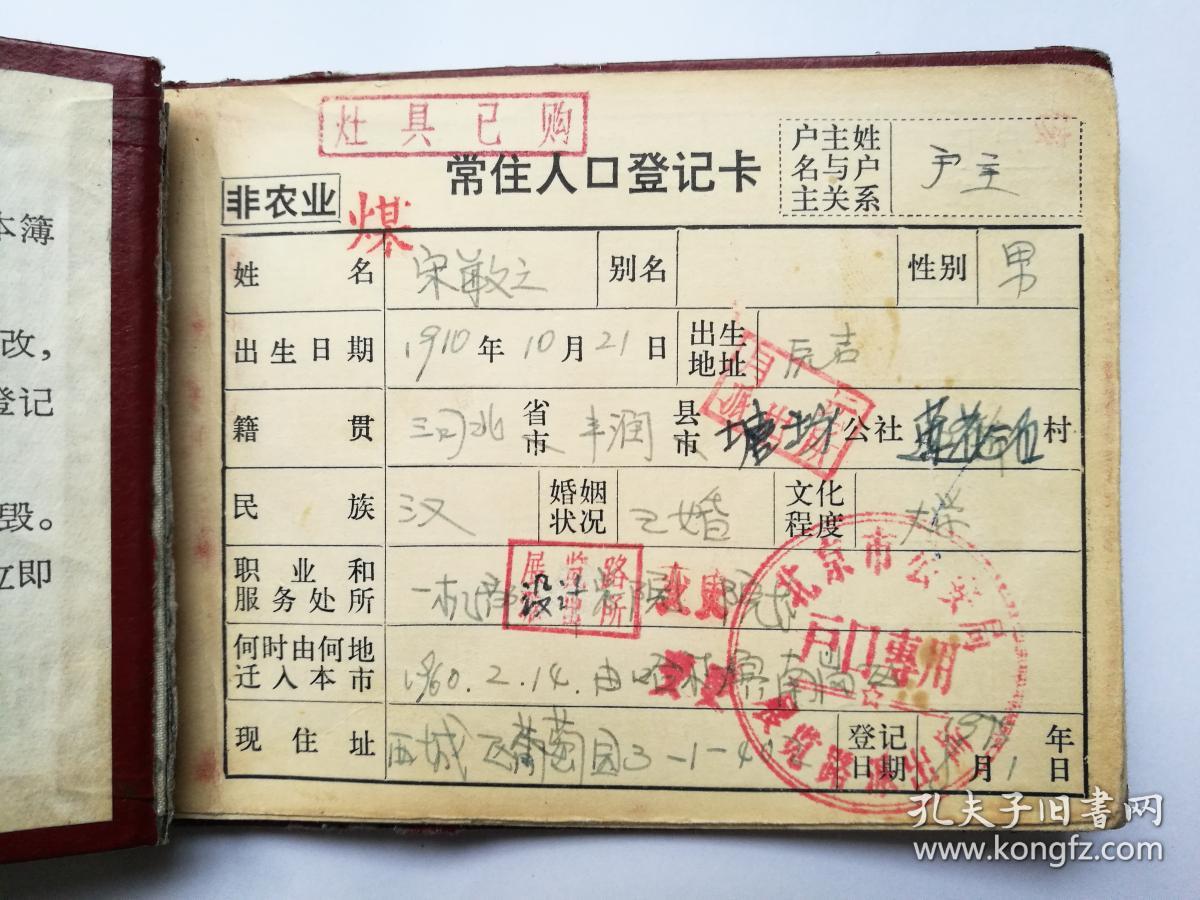 本簿
改，
登记
毁。
立即
灶具已购
常住人口登记卡
户主姓名与户主关系 户主
非农业
煤
姓名 宋敏之 别名 性别 男
出生日期 1910年10月21日 出生地址
籍贯 河北 省市 丰润 县市 公社 村
民族 汉 婚姻状况 已婚 文化程度 大学
职业和服务处所 一机部 设计 院
展览路
派出所
变更
何时由何地迁入本市 1960.2.14.由哈尔滨南岗区
变更
现住址 西城区葡萄园3-1-402 登记日期 年 月1日
北京市公安局
户口专用
展览路派出所
孔夫子旧书网
www.kongfz.com